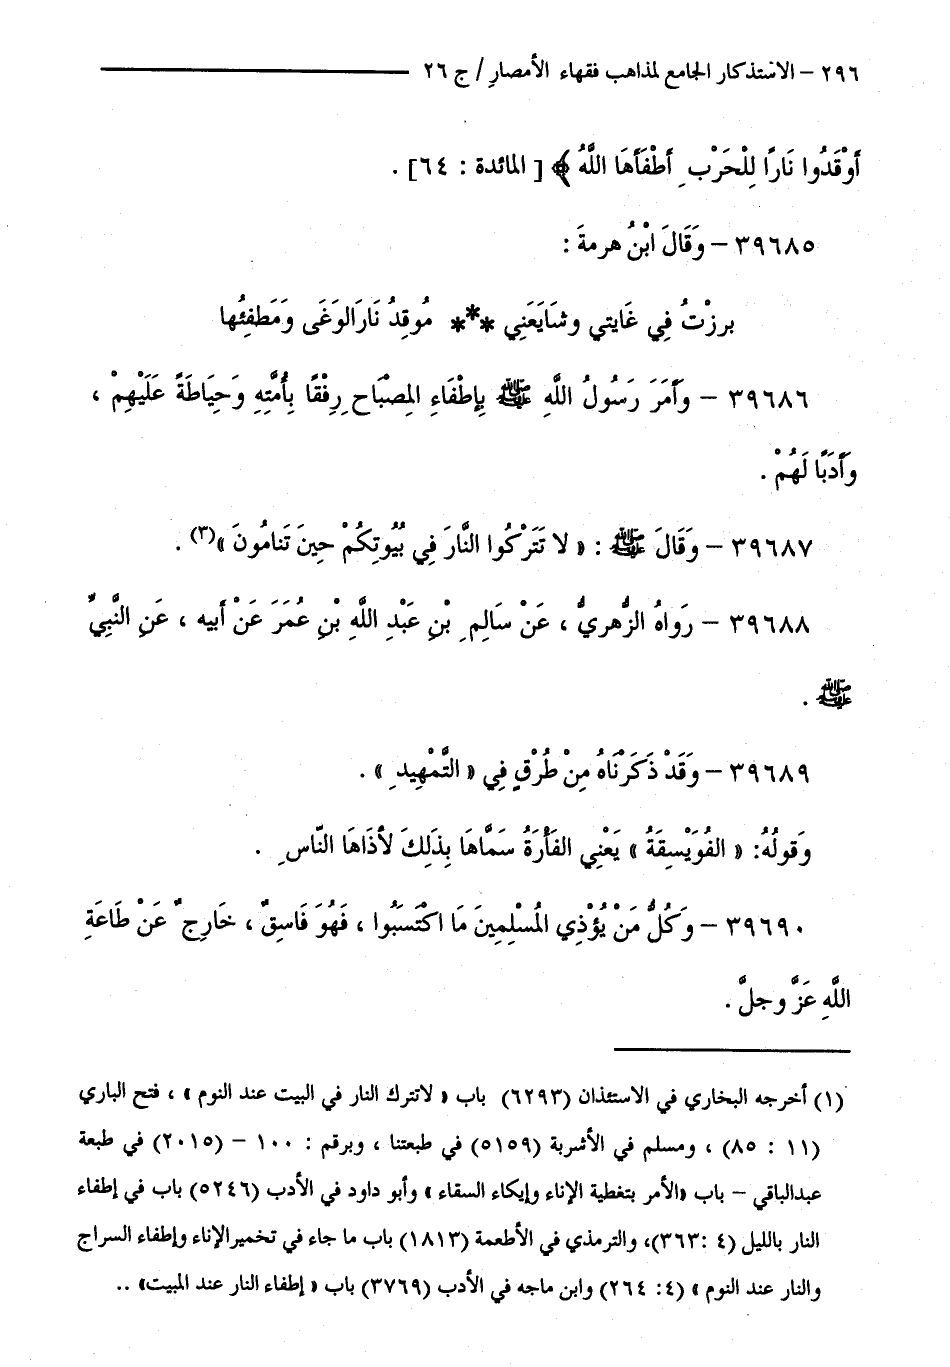 ٢٩٦ – الاستذكار الجامع لمذاهب فقهاء الأمصارِ / ج ٢٦
أَوْقَدُوا نَارًا لِلْحَرْبِ أَطْفَأَهَا اللَّهُ ﴾ [ المائدة : ٦٤] .
٣٩٦٨٥ – وَقَالَ ابْنُ هرمةَ :
برزْتُ فِي غَايتي وشَايَعَنِي *** مُوقِدُ نَارَالوَغَى وَمَطفِئُها
٣٩٦٨٦ – وَأَمَرَ رَسُولُ اللَّهِ ﷺ بِإطْفَاءِ المِصْبَاحِ رِفْقًا بِأُمَّتِهِ وَحِيَاطَةً عَلَيْهِمْ ،
وَأَدَبًا لَهُمْ .
٣٩٦٨٧ – وَقَالَ ﷺ : « لا تَتَرْكُوا النَّارَ فِي بُيُوتِكُمْ حِينَ تَنامُونَ »(٣) .
٣٩٦٨٨ – رَواهُ الزُّهريُّ ، عَنْ سَالِمِ بْنِ عَبْدِ اللَّهِ بْنِ عُمَرَ عَنْ أبيه ، عَنِ النَّبِيِّ
ﷺ .
٣٩٦٨٩ – وَقَدْ ذَكَرْنَاهُ مِنْ طُرْقٍ فِي « التَّمْهِيدِ » .
وَقولُهُ: « الفُوَيْسِقَةُ » يَعْنِي الفَأْرَةُ سَمَّاهَا بِذَلِكَ لأذَاهَا النَّاسِ .
٣٩٦٩٠ – وَكُلُّ مَنْ يُؤْذِي المُسْلِمِينَ مَا اكْتَسَبُوا ، فَهُوَ فَاسِقٌ ، خَارِجٌ عَنْ طَاعَةِ
اللَّهِ عَزَّ وجلَّ .
(١) أخرجه البخاري في الاستئذان (٦٢٩٣) باب « لاتترك النار في البيت عند النوم » ، فتح الباري
(١١ : ٨٥) ، ومسلم في الأشربة (٥١٥٩) في طبعتنا ، وبرقم : ١٠٠ – (٢٠١٥) في طبعة
عبدالباقي – باب «الأمر بتغطية الإناء وإيكاء السقاء » وأبو داود في الأدب (٥٢٤٦) باب في إطفاء
النار بالليل (٤ :٣٦٣)، والترمذي في الأطعمة (١٨١٣) باب ما جاء في تخميرالإناء وإطفاء السراج
والنار عند النوم » (٤: ٢٦٤) وابن ماجه في الأدب (٣٧٦٩) باب « إطفاء النار عند المبيت» ..